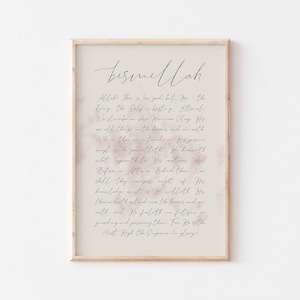 bismillah
Allah! There is no god but He - the
living, the Self-subsisting, Eternal.
No slumber can seize Him nor Sleep. His
are all things in the heavens and on earth.
Who is there can intercede in His presence
except as He permitteth? He knoweth
what appeareth to His creatures as
Before or After or Behind them. Nor
shall they compass aught of His
knowledge except as He willeth. His
throne doth extend over the heavens and on
earth, and He feeleth no fatigue in
guarding and preserving them. For He is the
Most High, the Supreme (in glory).